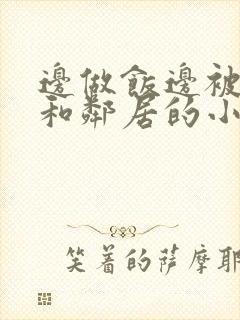 邊做飯邊被
和鄰居的小
笑着的薩摩耶